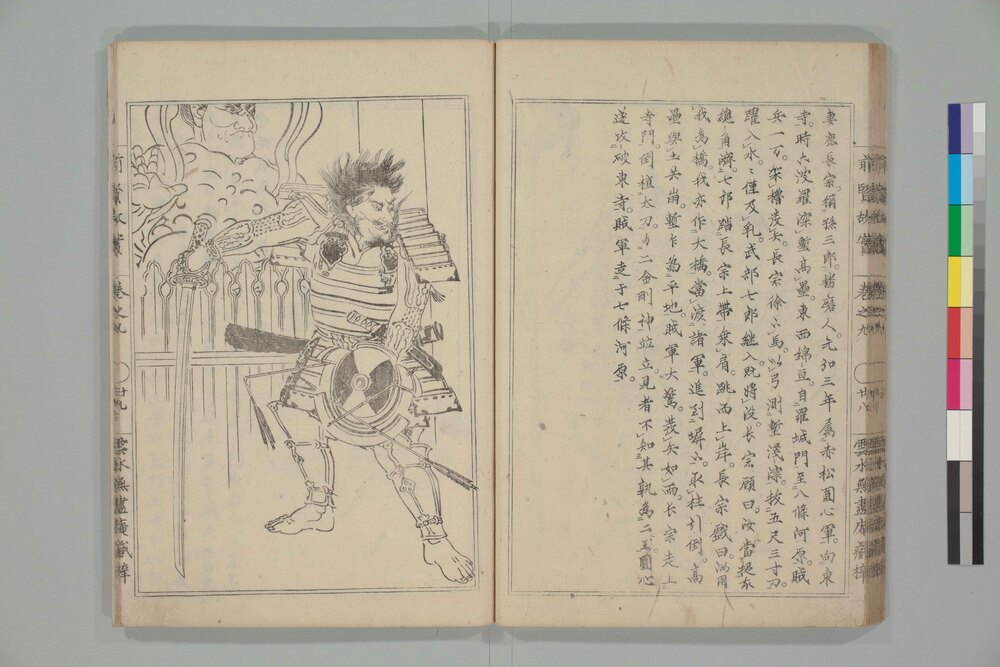 妻鹿長宗。稱孫三郎。播磨人。元弘三年屬赤松圓心軍向東
寺。時六波羅深塹高壘東西綿亘。自羅城門至八條河原。賊
兵一万。架櫓發矢。長宗徐下馬。以弓測塹淺深。拔五尺三寸刀
躍入水。水僅及乳。武部七郎繼入既將沒。長宗顧曰汝當捉我
總角濟。七郎踏長宗上帶乘肩。跳而上岸。長宗戲曰。汝用
我為橋。我亦作大橋。當渡諸軍。進到塀下。取柱引倒。高
壘與土共崩。塹乍為平地。賊軍大驚。發矢如雨。長宗走上
寺門倒植太刀。与二金剛神竝立見者不知其孰為二王。圓心
遂攻破東寺。賊軍走于七條河原。
前賢故實
卷之九
廿八
雲水無盡庵藏梓
前賢故實
卷之九
廿九
雲水無盡庵藏梓